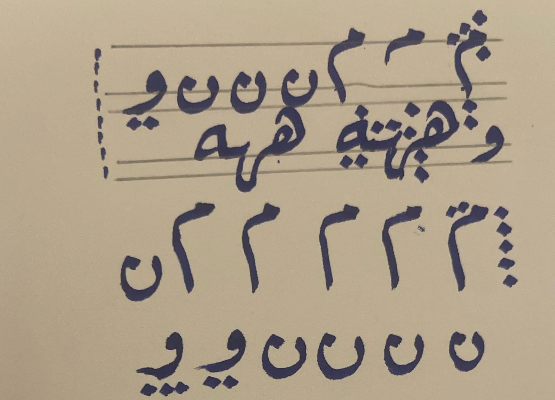 م م م ن ن ن و
و ههه ههه
م م م م م ن
ن ن ن ن و و